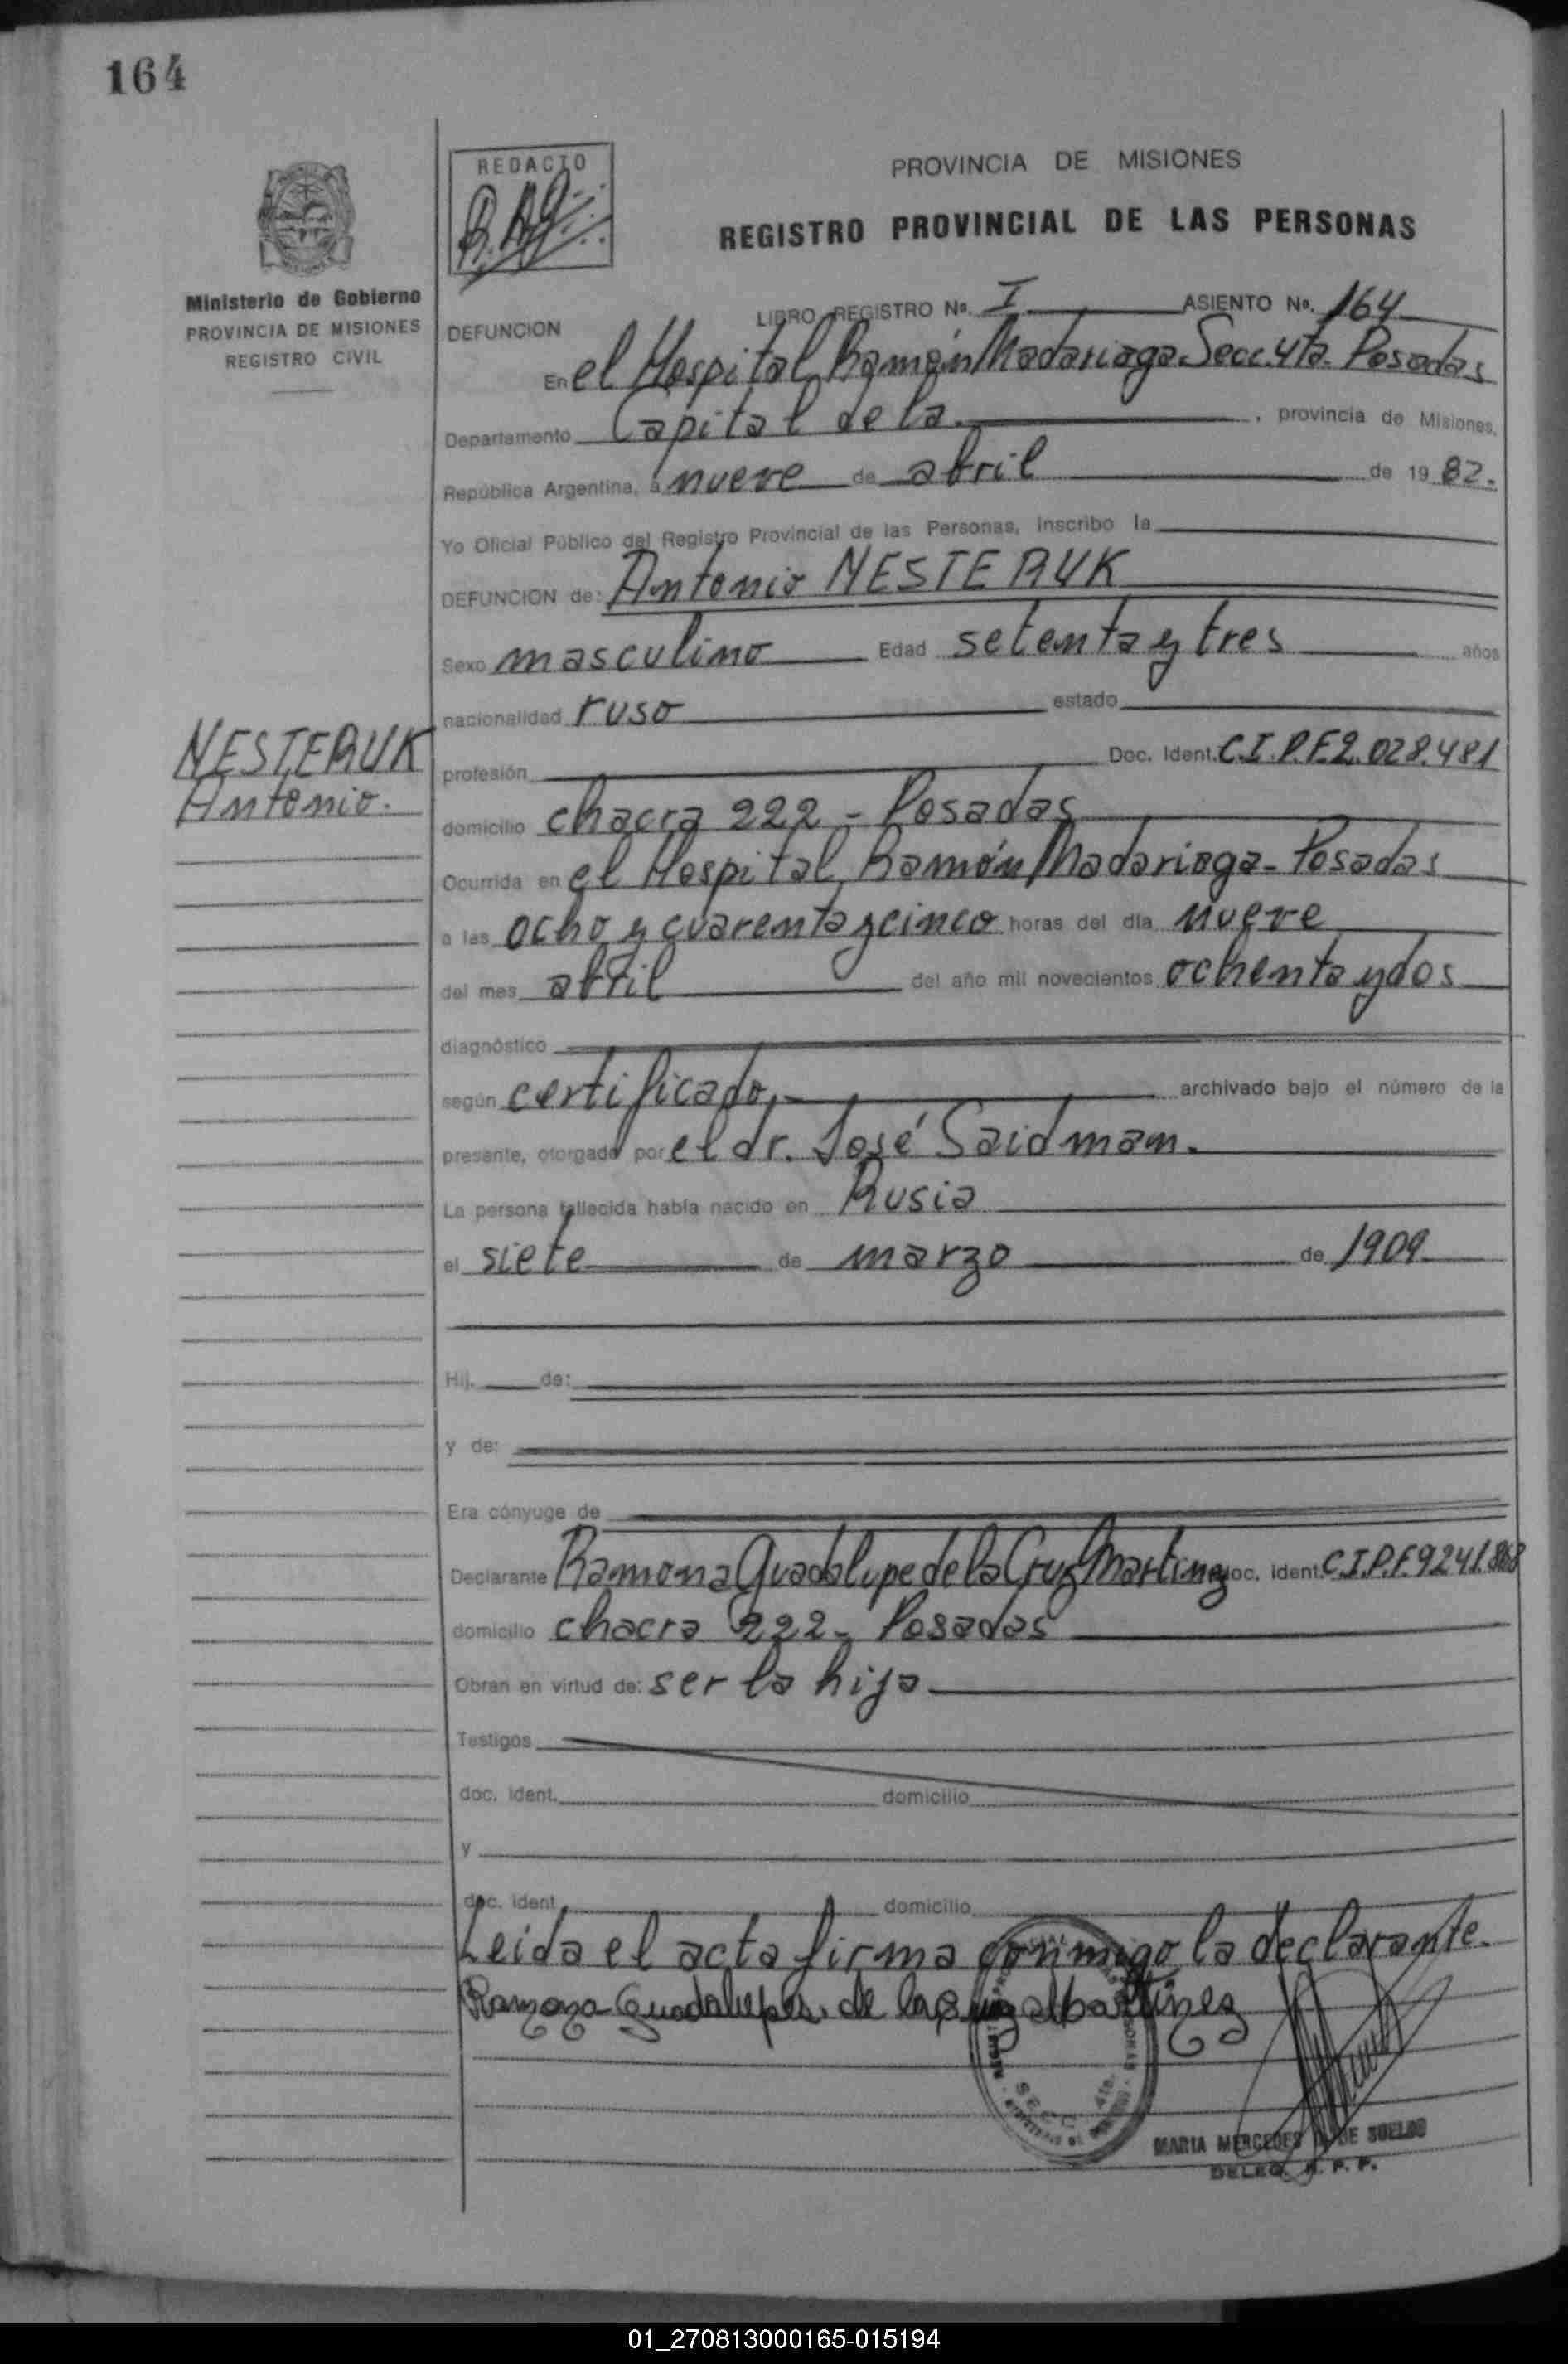 164
REDACTO
PROVINCIA DE MISIONES
REGISTRO PROVINCIAL DE LAS PERSONAS
Ministerio de Gobierno
PROVINCIA DE MISIONES
REGISTRO CIVIL
LIBRO REGISTRO No. I ASIENTO No. 164
DEFUNCION
En el Hospital Ramón Madariaga Secc. 4ta. Posadas
Departamento Capital de la , provincia de Misiones,
República Argentina, a nueve de abril de 1982.
Yo Oficial Público del Registro Provincial de las Personas, inscribo la
DEFUNCION de: Antonio NESTERUK
Sexo masculino Edad setenta y tres años
nacionalidad ruso estado
NESTERUK
Antonio.
profesión Doc. Ident. C.I.P.F.2.028.481
domicilio chacra 222 - Posadas
Ocurrida en el Hospital Ramón Madariaga - Posadas
a las ocho y cuarenta y cinco horas del día nueve
del mes abril del año mil novecientos ochenta y dos
diagnóstico
según certificado, archivado bajo el número de la
presente, otorgado por el dr. José Saidmam.
La persona fallecida había nacido en Rusia
el siete de marzo de 1909
Hij. de:
y de:
Era cónyuge de
Declarante Ramona Guadalupe de la Cruz Martinez doc. Ident. C.I.P.F.9241.868
domicilio chacra 222 - Posadas
Obran en virtud de: ser la hija
Testigos
doc. ident. domicilio
y
doc. ident. domicilio
Leida el acta firma conmigo la declarante.
Ramona Guadalupe de la Cruz Martinez
SECC. 4ta.
MARIA MERCEDES DE SUELDO
DELEG. R. P. P.
01_270813000165-015194